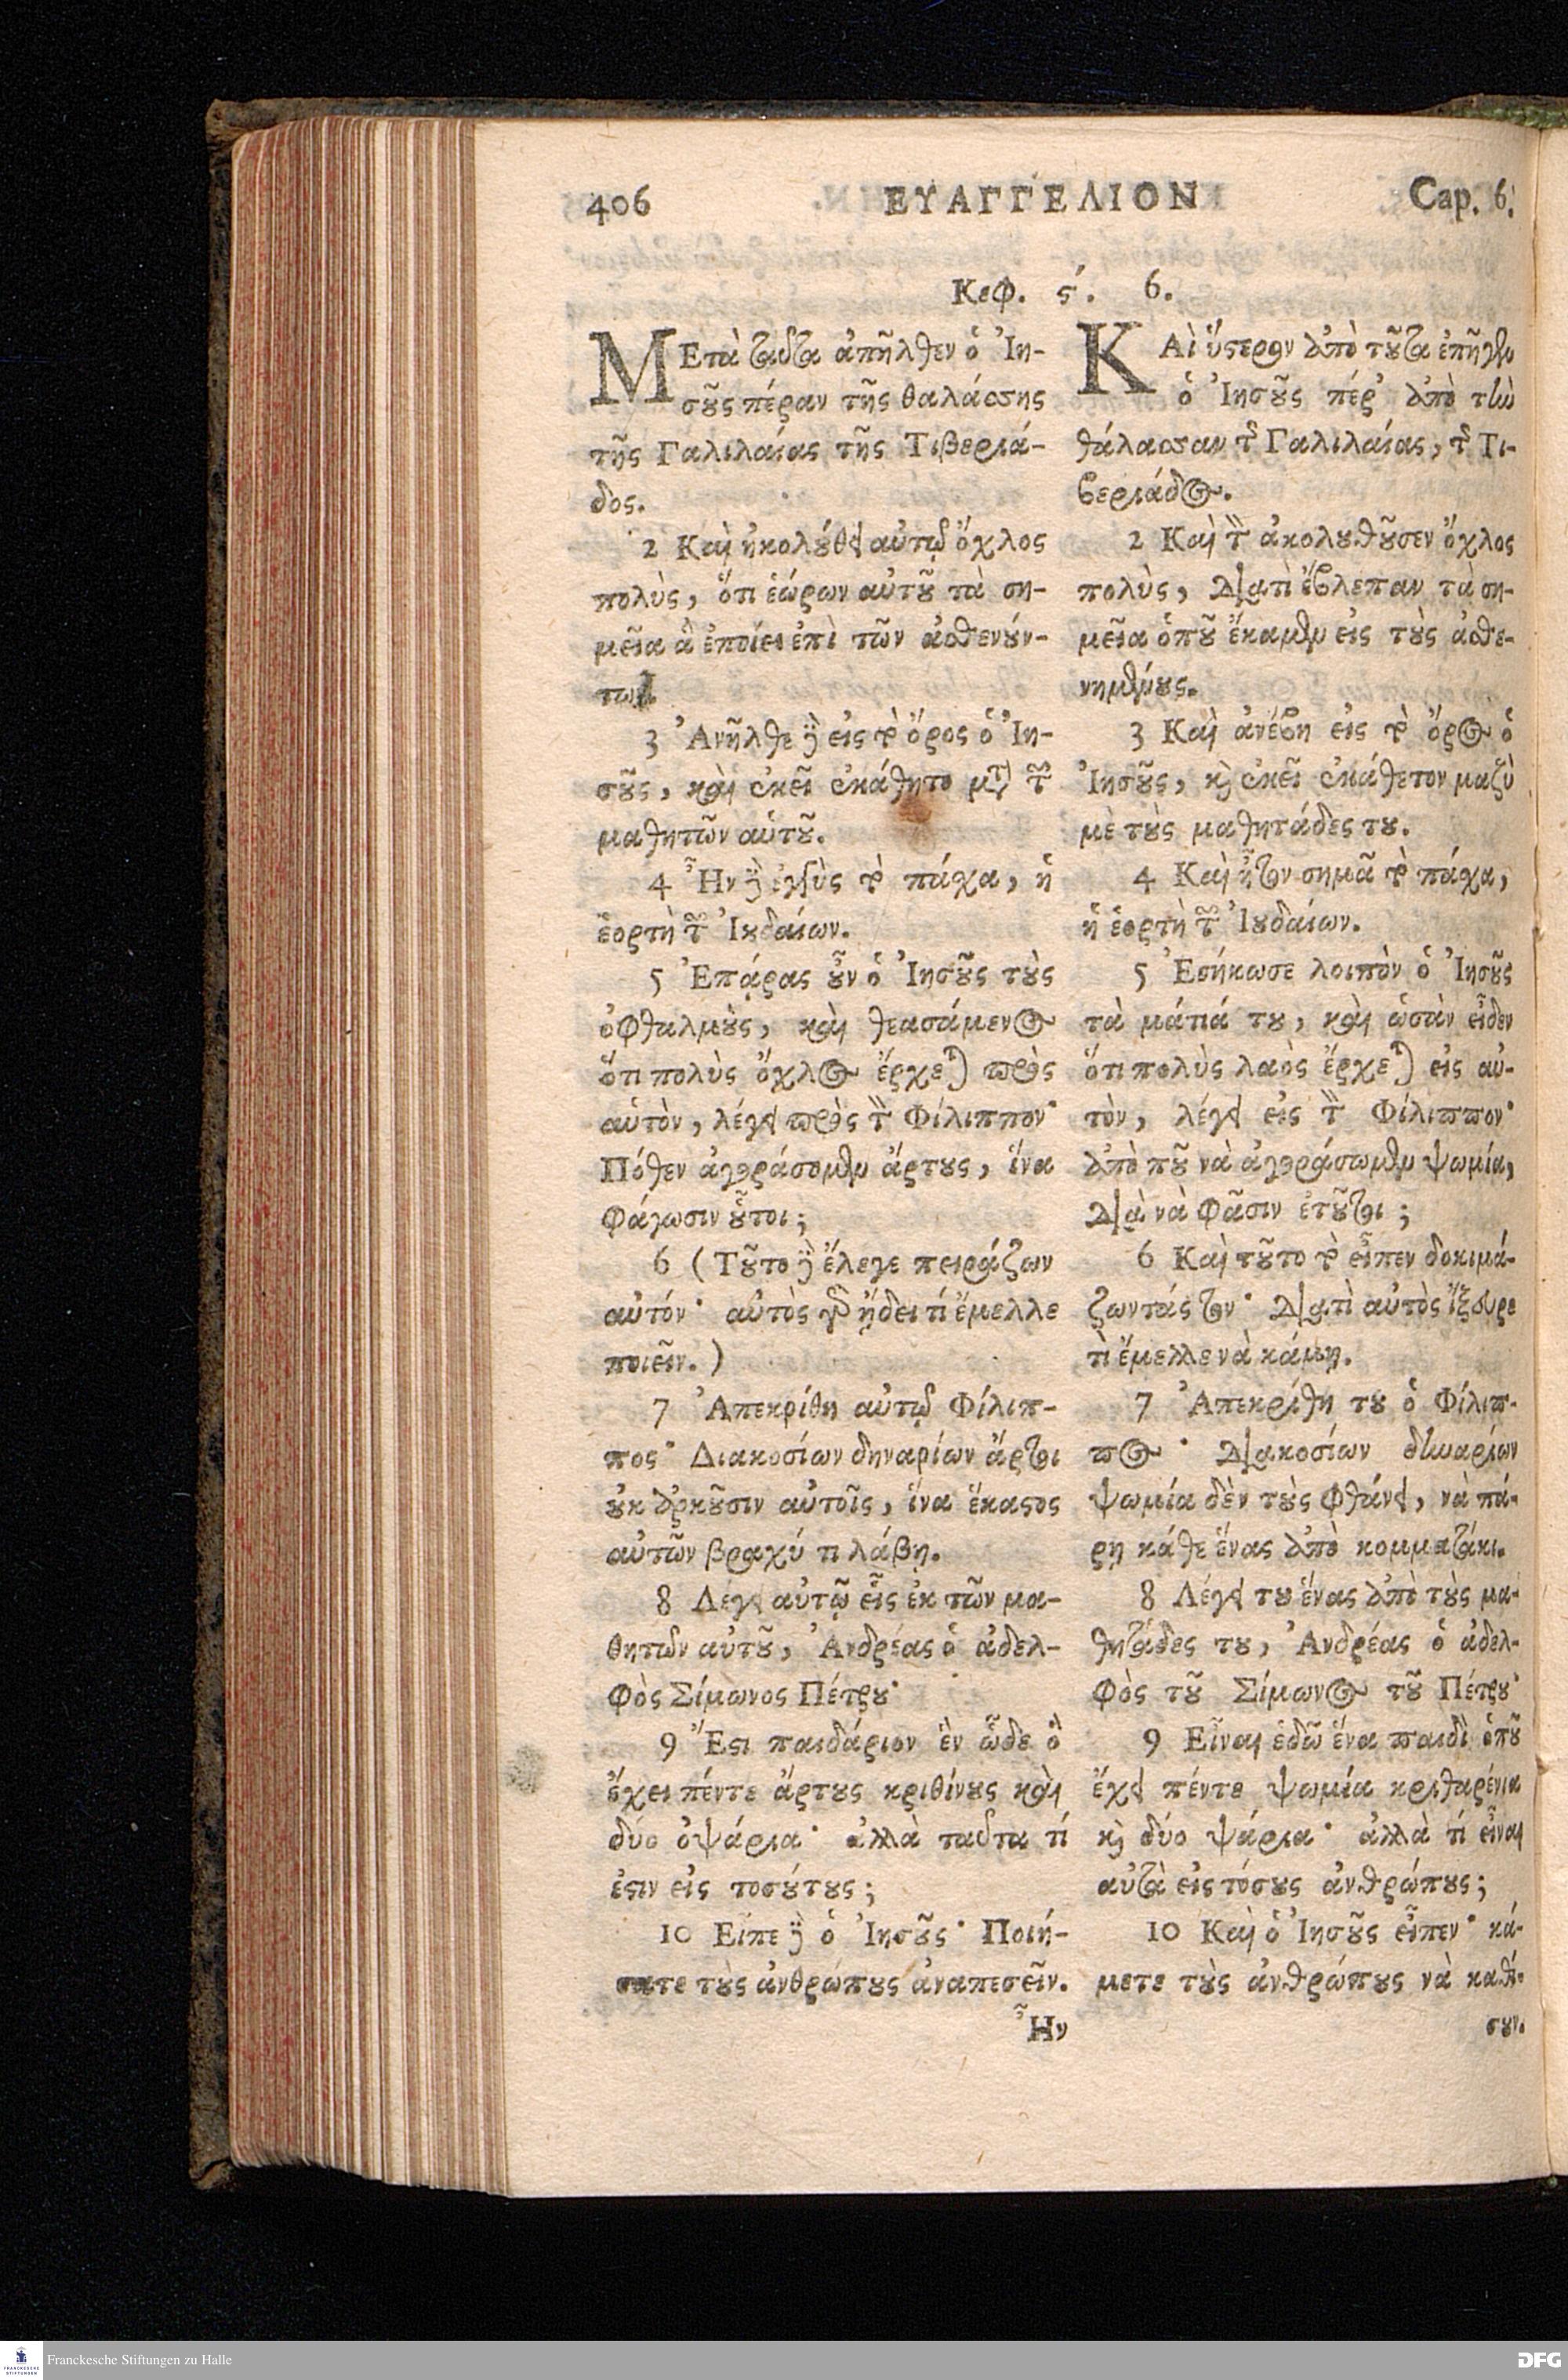 406 ΕΥΑΓΓΕΛΙΟΝ Cap. 6.
Κεφ. ϛ´. 6.
ΜΕτὰ ταῦτα ἀπῆλθεν ὁ Ἰη-
σοῦς πέραν τῆς θαλάσσης
τῆς Γαλιλαίας τῆς Τιβεριά-
δος.
2 Καὶ ἠκολούθει αὐτῷ ὄχλος
πολὺς, ὅτι ἑώρων αὐτοῦ τὰ ση-
μεῖα ἃ ἐποίει ἐπὶ τῶν ἀσθενούν-
των.
3 Ἀνῆλθε δὲ εἰς τὸ ὄρος ὁ Ἰη-
σοῦς, καὶ ἐκεῖ ἐκάθητο μετὰ τῶν
μαθητῶν αὑτοῦ.
4 Ἦν δὲ ἐγγὺς τὸ πάσχα, ἡ
ἑορτὴ τῶν Ἰουδαίων.
5 Ἐπάρας οὖν ὁ Ἰησοῦς τοὺς
ὀφθαλμοὺς, καὶ θεασάμενος
ὅτι πολὺς ὄχλος ἔρχεται πρὸς
αὑτὸν, λέγει πρὸς τὸν Φίλιππον·
Πόθεν ἀγοράσομεν ἄρτους, ἵνα
φάγωσιν οὗτοι;
6 (Τοῦτο δὲ ἔλεγε πειράζων
αὐτόν· αὐτὸς γὰρ ᾔδει τί ἔμελλε
ποιεῖν.)
7 Ἀπεκρίθη αὐτῷ Φίλιπ-
πος· Διακοσίων δηναρίων ἄρτοι
οὐκ ἀρκοῦσιν αὐτοῖς, ἵνα ἕκαστος
αὐτῶν βραχύ τι λάβῃ.
8 Λέγει αὐτῷ εἷς ἐκ τῶν μα-
θητῶν αὐτοῦ, Ἀνδρέας ὁ ἀδελ-
φὸς Σίμωνος Πέτρου·
9 Ἔστι παιδάριον ἓν ὧδε ὃ
ἔχει πέντε ἄρτους κριθίνους καὶ
δύο ὀψάρια· ἀλλὰ ταῦτα τί
ἐστιν εἰς τοσούτους;
10 Εἶπε δὲ ὁ Ἰησοῦς· Ποιή-
σατε τοὺς ἀνθρώπους ἀναπεσεῖν.
Ἦν
ΚΑὶ ὕστερον ἀπὸ τοῦτα ἐπῆγεν
ὁ Ἰησοῦς πέρ' ἀπὸ τὴν
θάλασσαν τῆς Γαλιλαίας, τῆς Τι-
βεριάδος.
2 Καὶ τὸν ἀκολουθοῦσεν ὄχλος
πολὺς, διατὶ ἔβλεπαν τὰ ση-
μεῖα ὁποῦ ἔκαμεν εἰς τοὺς ἀσθε-
νημένους.
3 Καὶ ἀνέβη εἰς τὸ ὄρος ὁ
Ἰησοῦς, καὶ ἐκεῖ ἐκάθετον μαζὺ
μὲ τοὺς μαθητάδες του.
4 Καὶ ἦτον σημᾶ τὸ πάσχα,
ἡ ἑορτὴ τῶν Ἰουδαίων.
5 Ἐσήκωσε λοιπὸν ὁ Ἰησοῦς
τὰ μάτιά του, καὶ ὡσὰν εἶδεν
ὅτι πολὺς λαὸς ἔρχεται εἰς αὐ-
τὸν, λέγει εἰς τὸν Φίλιππον·
ἀπὸ ποῦ νὰ ἀγοράσωμεν ψωμία,
διὰ νὰ φᾶσιν ἐτοῦτοι;
6 Καὶ τοῦτο τὸ εἶπεν δοκιμά-
ζωντάς τον· διατὶ αὐτὸς ἤξευρε
τὶ ἔμελλε νὰ κάμῃ.
7 Ἀπεκρίθη του ὁ Φίλιπ-
πος· διακοσίων δηναρίων
ψωμία δὲν τοὺς φθάνει, νὰ πά-
ρῃ κάθε ἕνας ἀπὸ κομματάκι.
8 Λέγει του ἕνας ἀπὸ τοὺς μα-
θητάδες του, Ἀνδρέας ὁ ἀδελ-
φὸς τοῦ Σίμωνος τοῦ Πέτρου·
9 Εἶναι ἐδῶ ἕνα παιδὶ ὁποῦ
ἔχει πέντε ψωμία κριθαρένια
καὶ δύο ψάρια· ἀλλὰ τί εἶναι
αὐτὰ εἰς τόσους ἀνθρώπους;
10 Καὶ ὁ Ἰησοῦς εἶπεν· κά-
μετε τοὺς ἀνθρώπους νὰ καθί-
σουν.
Franckesche Stiftungen zu Halle
DFG